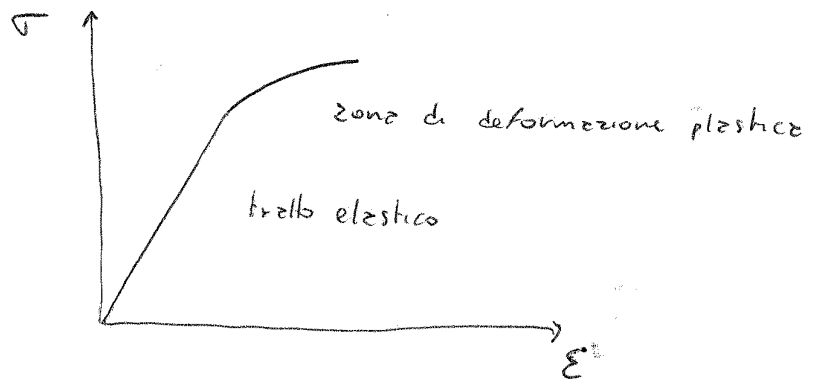 σ
zona di deformazione plastica
tratto elastico
ε